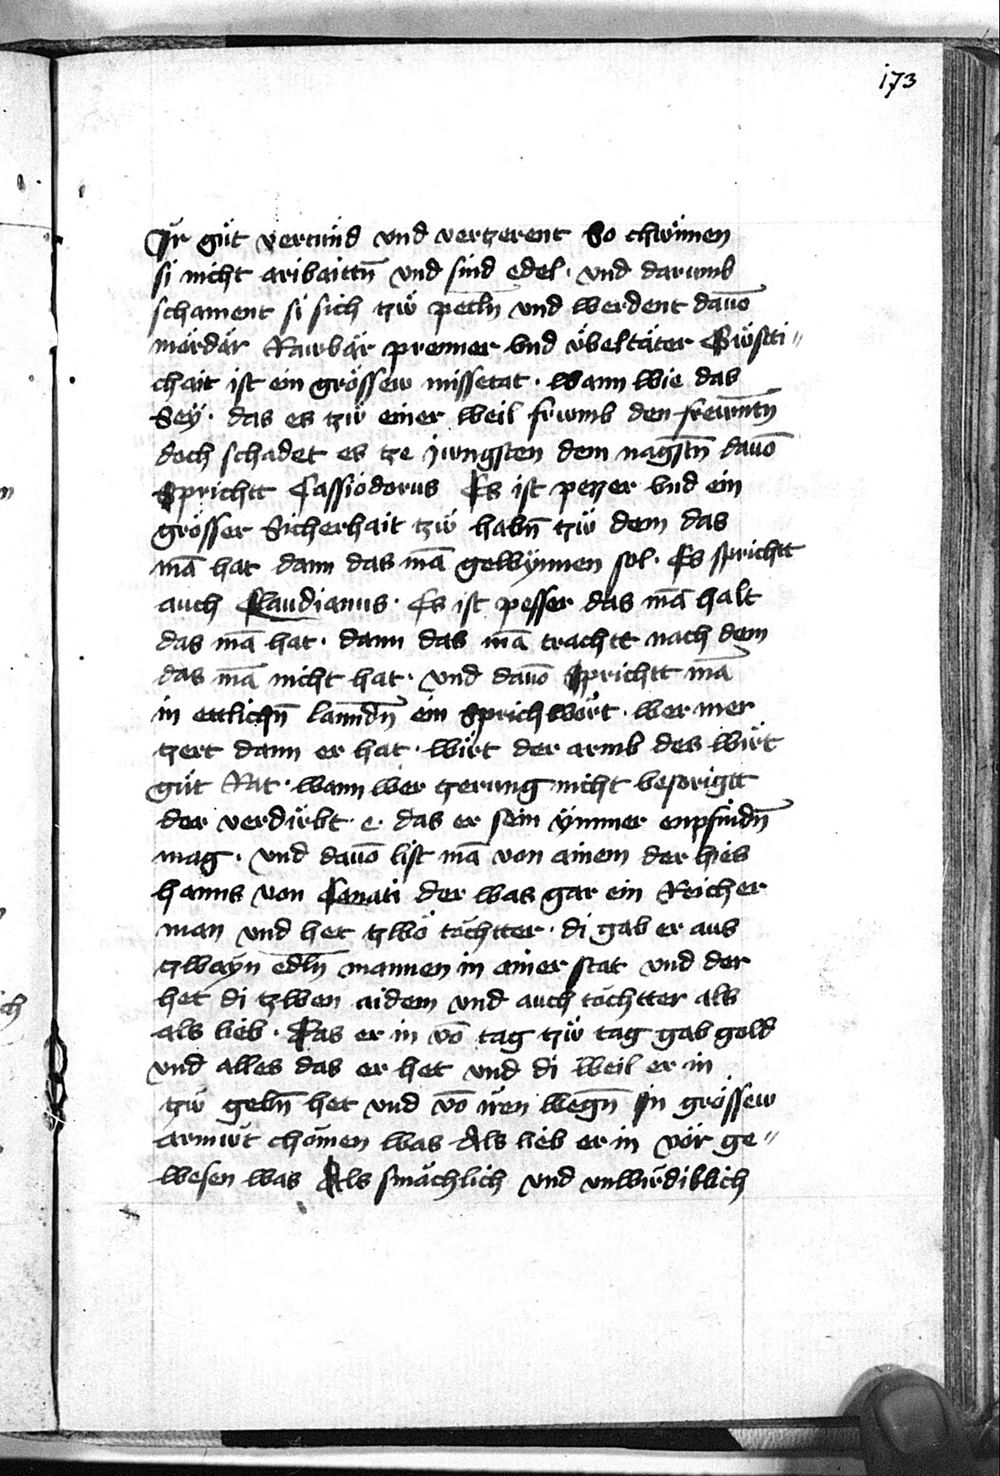 173
Ir güt vertuind vnd vertzerent So chwünnen
si nicht aribaittn̄ vnd sind edel · vnd darumb
schament si sich tzw̋ petln̄ vnd werdent dauō
mördär Raubär prenner vnd v̈beltäter Gw̋sti〃
chait ist ein grössew missetat · wann wie das
Sey · das es tzw̋ einer weil frumb den frewntn̄
doch schadet es tze jungsten dem nagstn̄ dauō
Sprichtt Cassiodorus Es ist pezzer vnd ein
grösser Sicherhait tzw̋ habn̄ tzw̋ dem das
mā hat dann das mā gewÿnnen sol · Es sprichtt
auch Claudianus · Es ist pesser das mā halt
das mā hat · dann das mā trachtt nach dem
das mā nicht hat · vnd dauō Sprichtt mā
in ettlichn̄ lanndn̄ ein Sprichwört · wer mer
tzert dann er hat · wirt der armb des wirt
güt Rat · wann wer tzerung nicht besorigtt
der verdirbt · e · das er sein ÿnner enpfindn̄
mag · vnd dauō list mā von ainem der hies
hanns von Canati der was gar ein Reicher
man vnd het tzwo töchtter · di gab er aus
tzwayn edln̄ mannen in ainer stat vnd der
het di tzwen aidem vnd auch töchtter als
als lieb · Das er in vō tag tzw̋ tag gab gold
vnd alles das er het vnd di weil er in
tzw̋ gebn̄ het vnd vō iren wegn̄ In grössew
armüt chömen was Als lieb er in vör ge〃
wesen was Als smächlich vnd vnwirdiklich